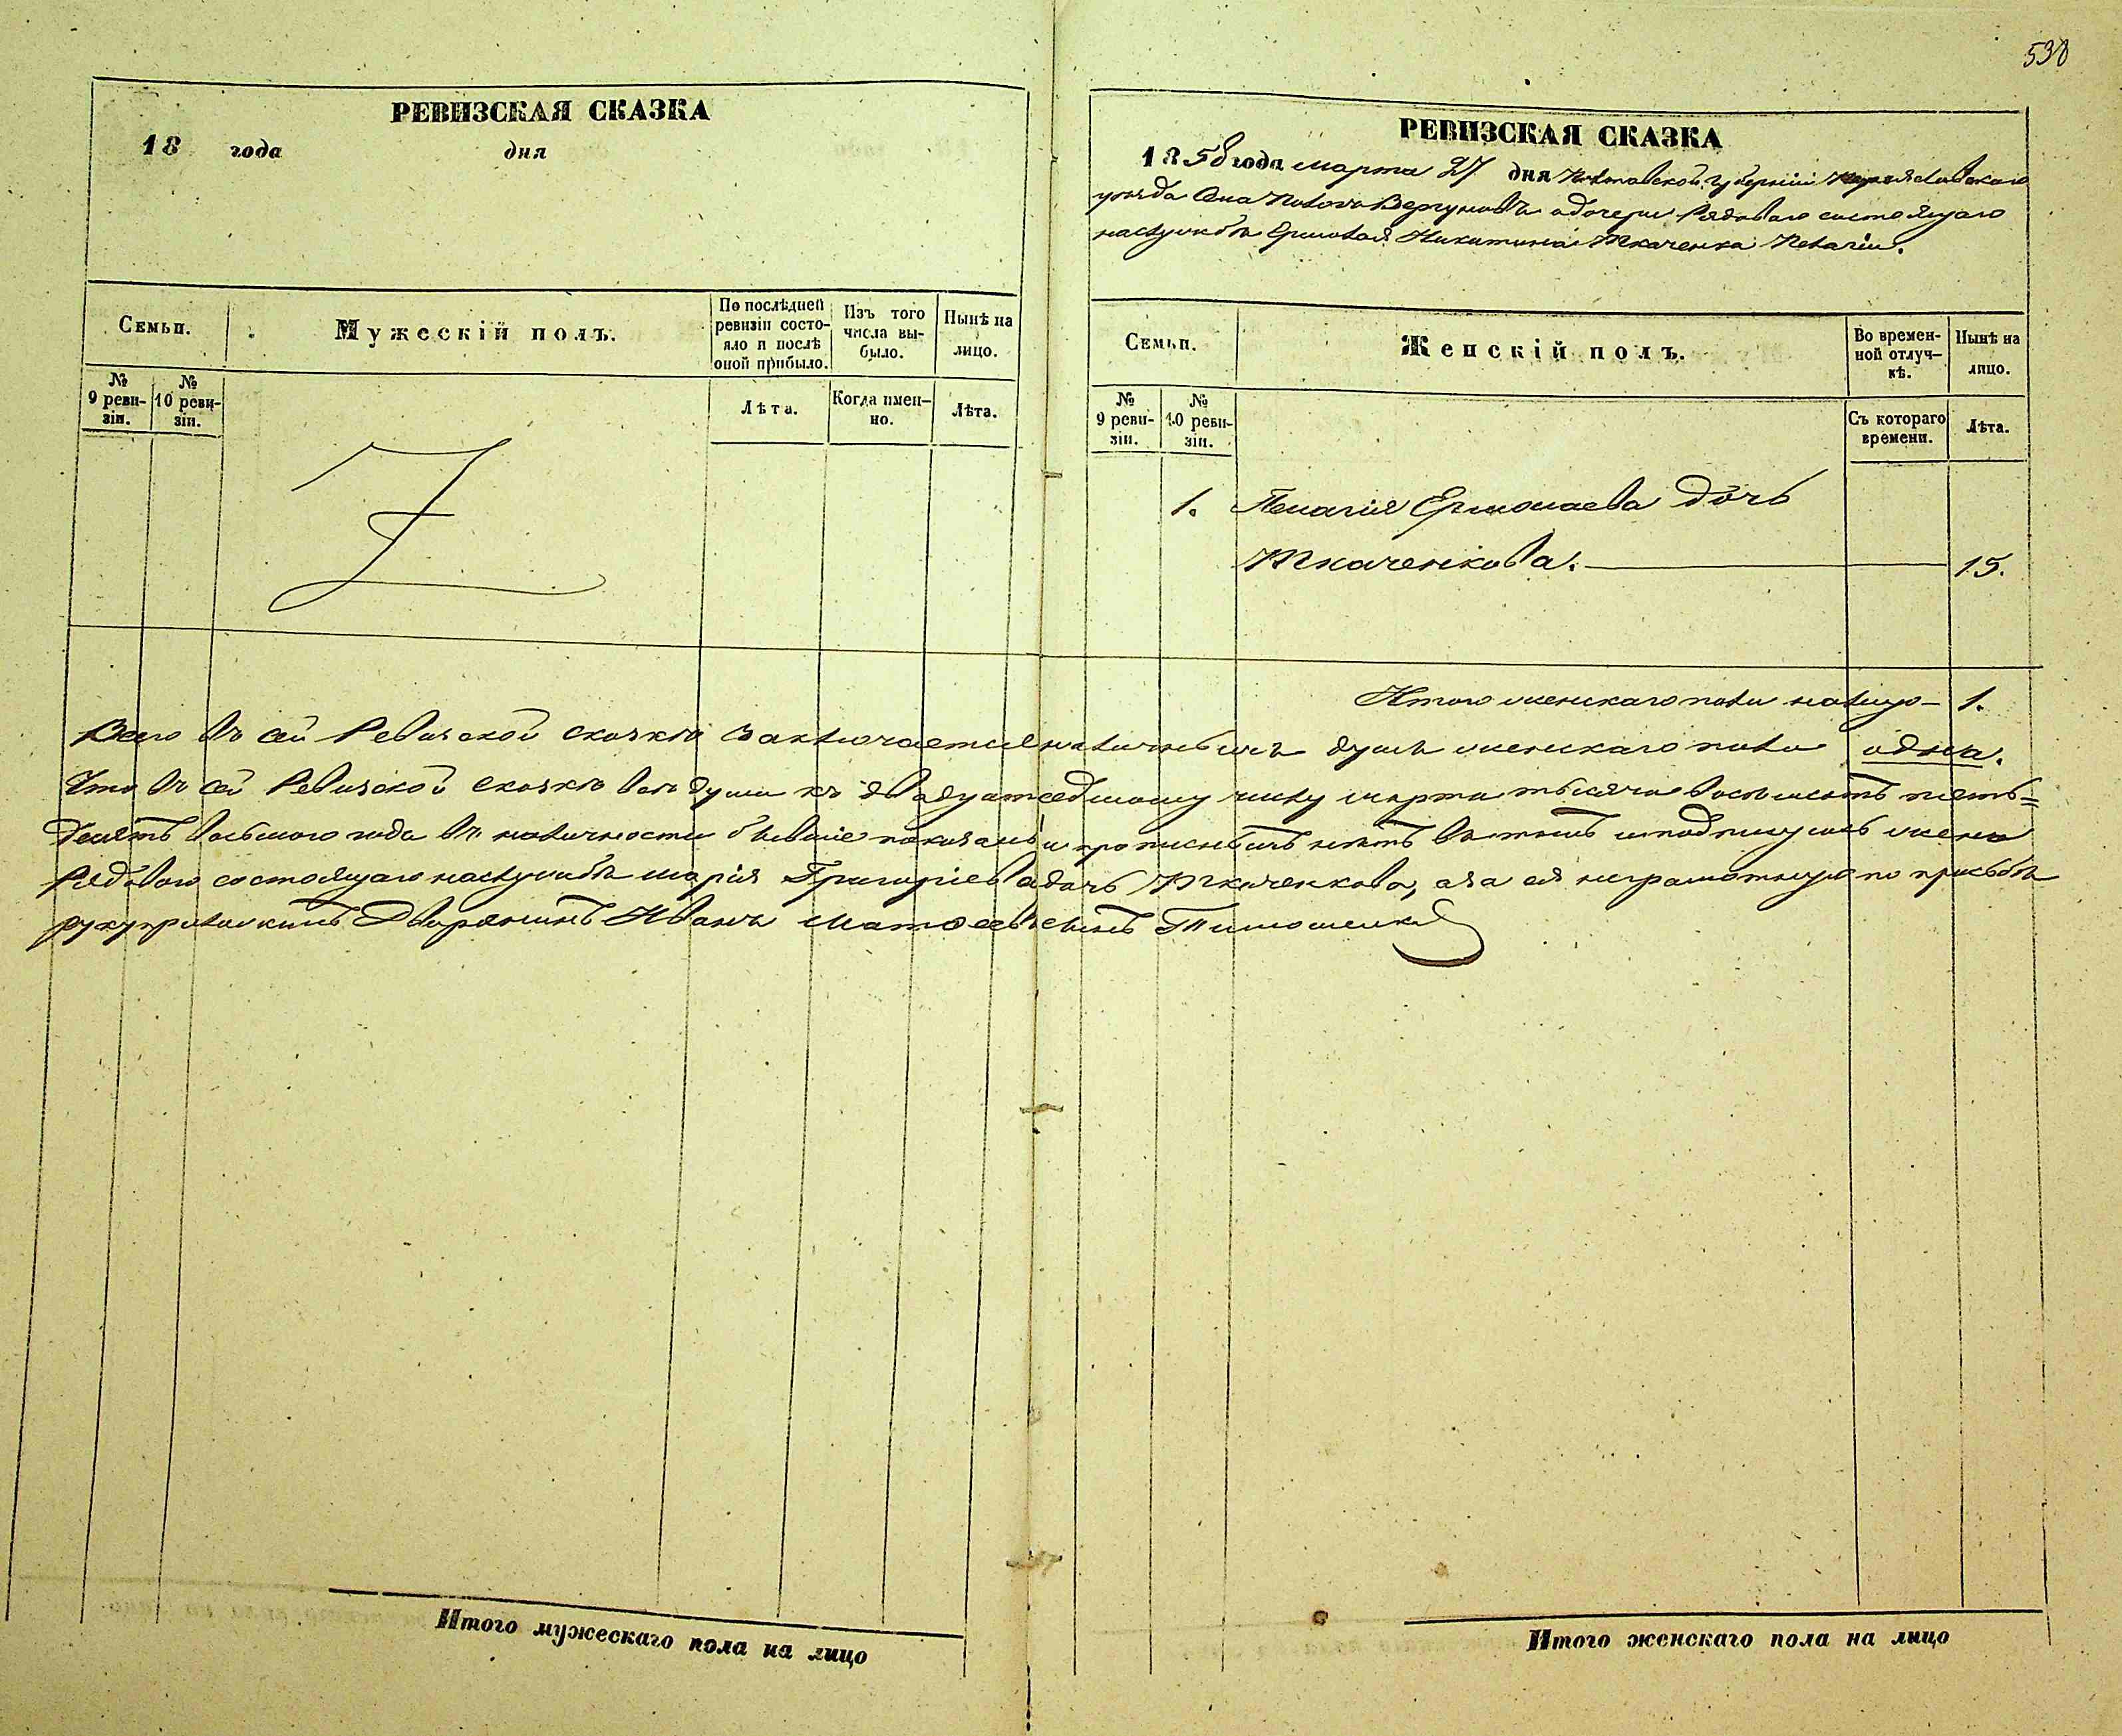 538
РЕВИЗСКАЯ СКАЗКА
18 года дня
Семьи.
Мужескій полъ.
По послѣдней ревизіи состо-
яло и послѣ оной прибыло.
Изъ того числа вы-
было.
Нынѣ на лицо.
№ 9 реви-
зіи.
№ 10 реви-
зіи.
Лѣта.
Когда имен-
но.
Лѣта.
РЕВИЗСКАЯ СКАЗКА
1858 года марта 27 дня Полтавской Губерніи Переяславскаго
уѣзда Села Полого Вергуновъ о дочери Рядоваго состоящаго
на службѣ Ермолая Никитина Ткаченка Пелагіи.
Семьи.
Женскій полъ.
Во времен-
ной отлуч-
кѣ.
Нынѣ на лицо.
№ 9 реви-
зіи.
№ 10 реви-
зіи.
Съ котораго времени.
Лѣта.
1. Пелагія Ермолаева дочь
Ткаченкова. 15.
Итого женскаго пола налицо 1.
Всего въ сей Ревизской сказкѣ заключается наличныхъ душъ женскаго пола одна.
Что въ сей Ревизской сказкѣ всѣ души къ двадцать седьмому числу марта тысяча восемьсотъ пять=
десятъ восьмого года въ наличности бывшіе показаны и прописныхъ нѣтъ въ томъ и подпишусь жена
Рядоваго состоящаго на службѣ Марія Григоріева дочь Ткаченкова, а за ея неграмотную по прозьбѣ
руку приложилъ Дворянинъ Иванъ Матвѣевъ сынъ Тимошенко
Итого мужескаго пола на лицо
Итого женскаго пола на лицо